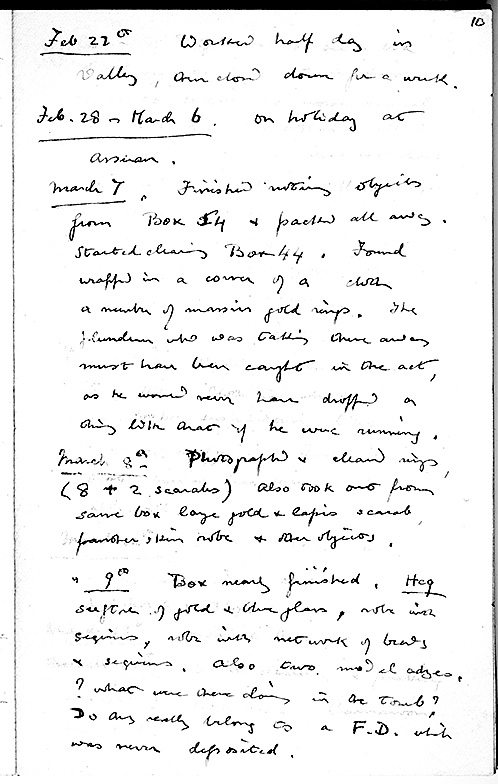 10
Feb 22nd Worked half day in
Valley, then closed down for a week.
Feb. 28 - March 6. On holiday at
Assuan.
March 7. Finished noting objects
from Box 54 & packed all away.
Started clearing Box 44. Found
wrapped in a corner of a cloth
a number of massive gold rings. The
plunderer who was taking these away
must have been caught in the act,
as he would never have dropped a
thing like that if he were running.
March 8th Photographed & cleaned rings,
(8 + 2 scarabs) Also took out from
same box large gold & lapis scarab,
panther skin robe & other objects.
" 9th Box nearly finished. Heq
sceptre of gold & blue glass, robe with
sequins, robe with network of beads
& sequins. Also two model adzes.
? what were these doing in the tomb?
Do they really belong to a F.D. which
was never deposited.